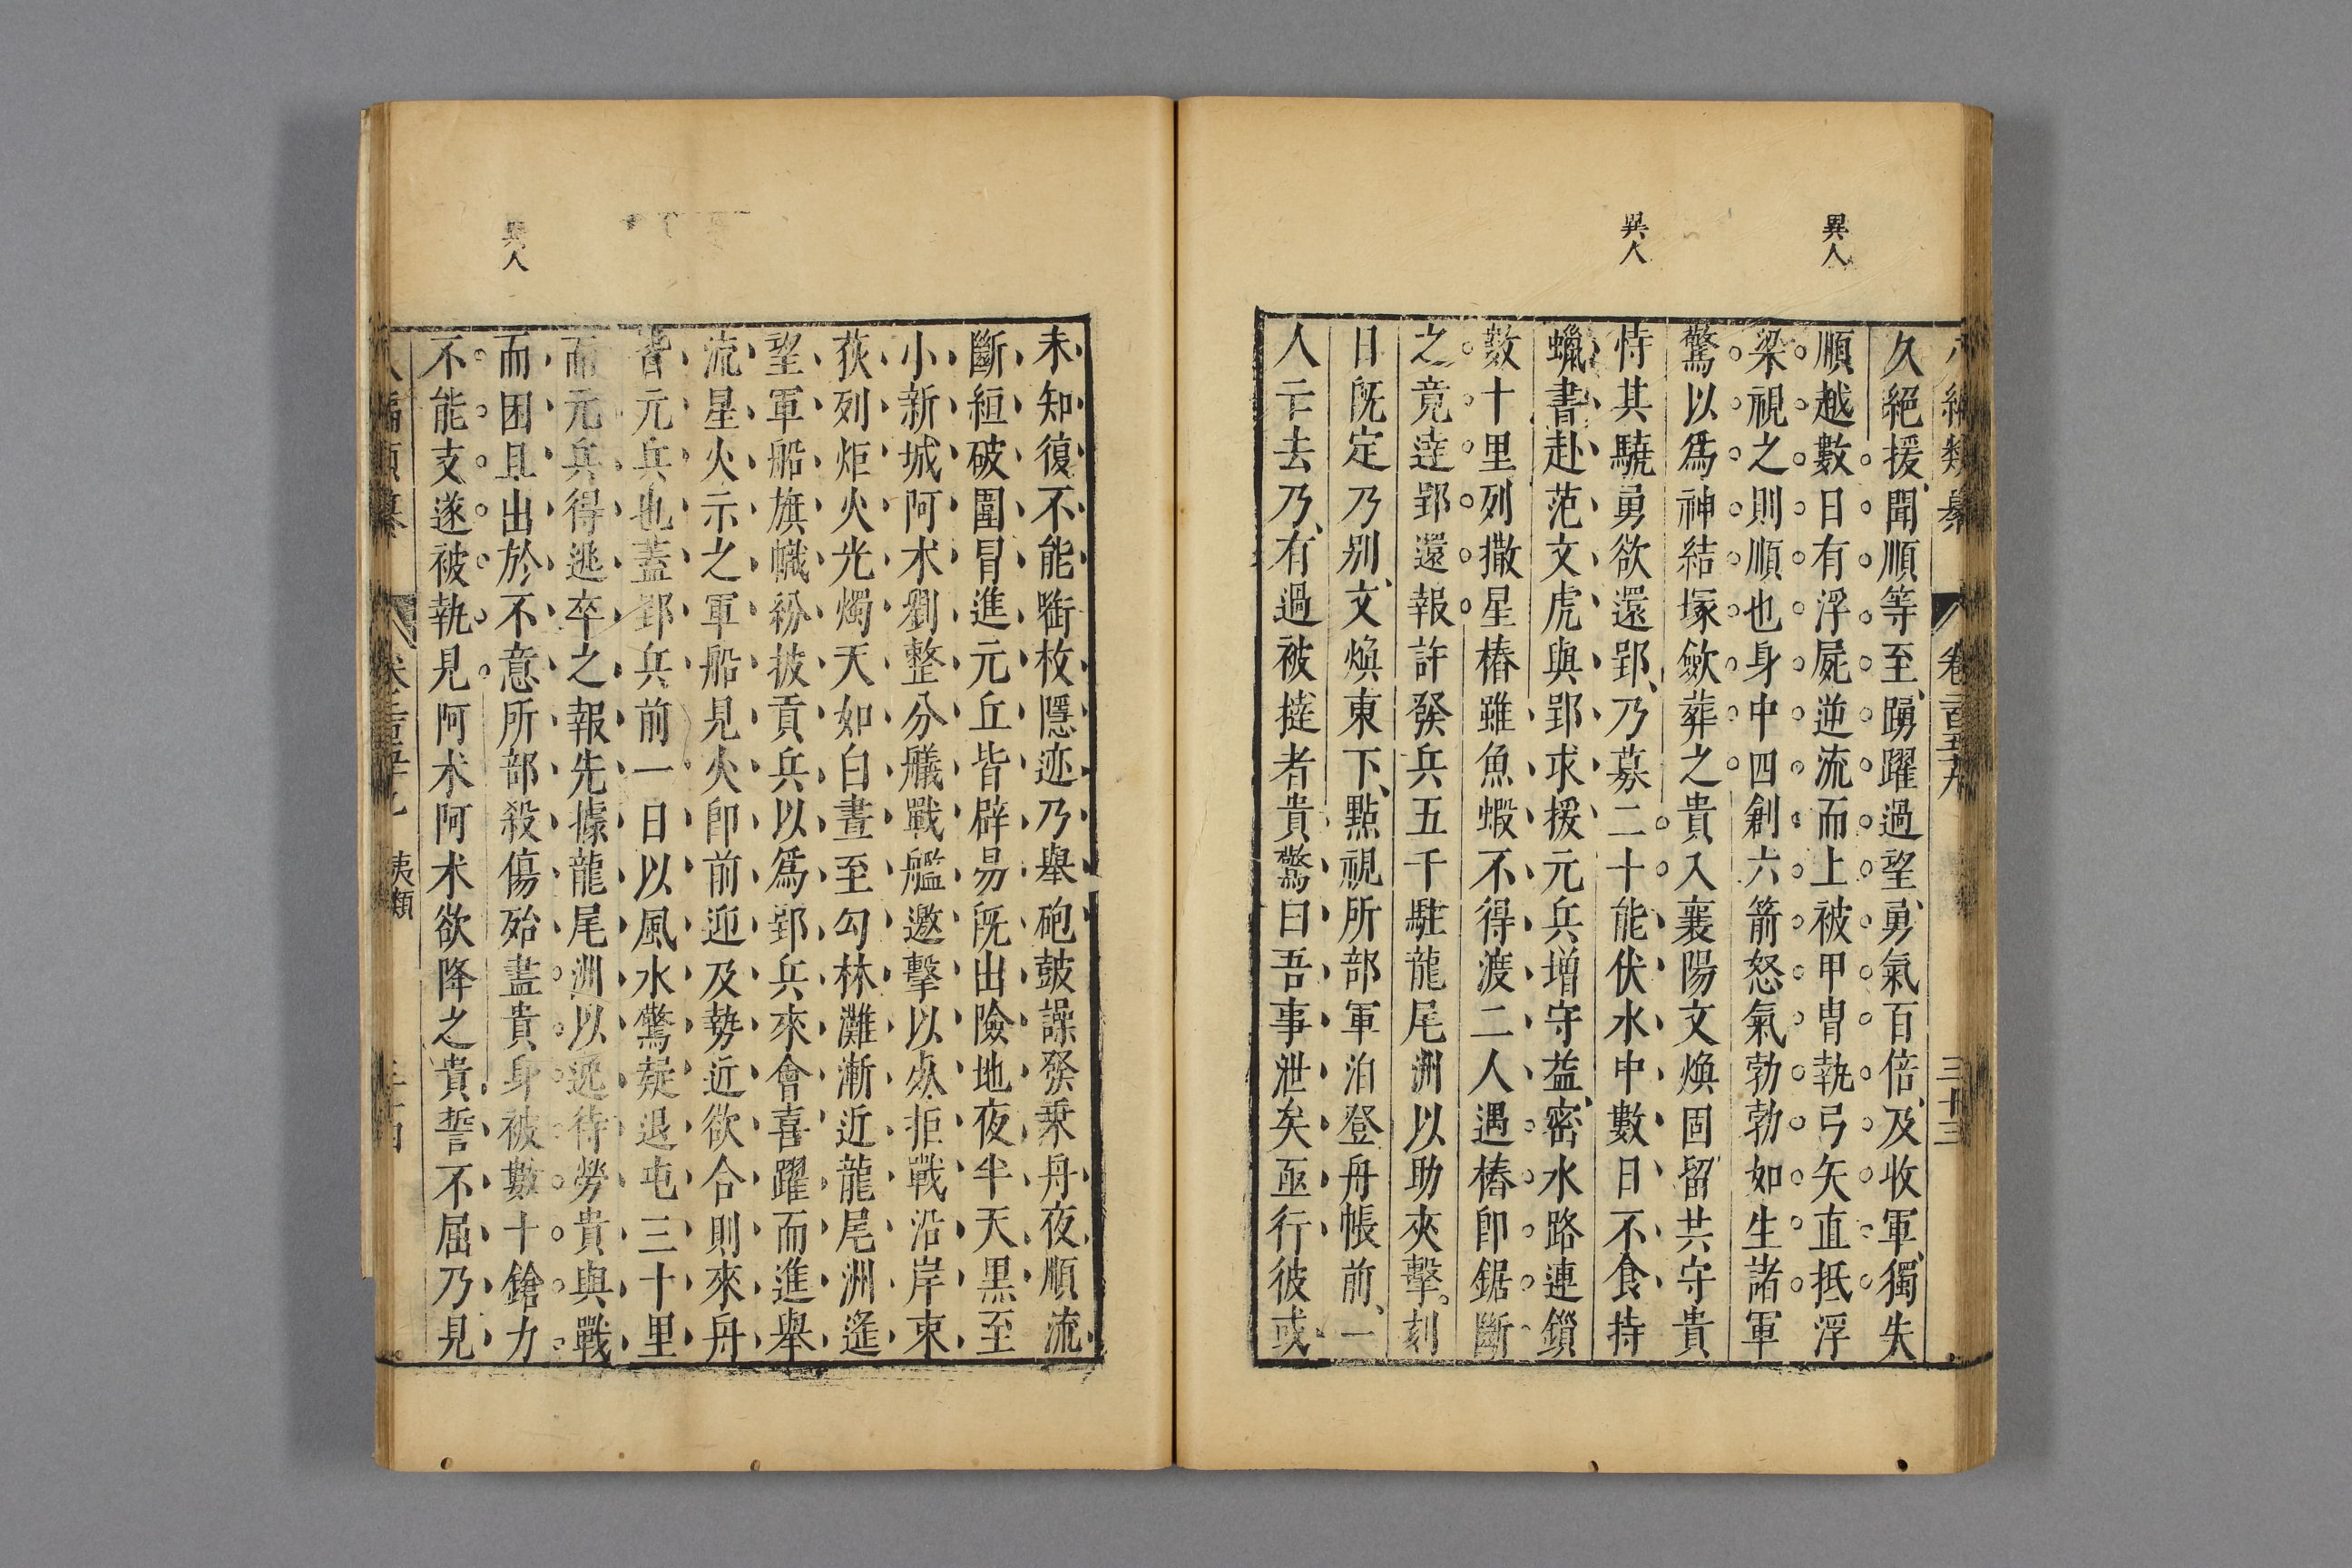 異人
異人
八編類纂 卷二百五十九 三十三
久絕援聞順等至踴躍過望勇氣百倍及收軍獨失
順越數日有浮屍逆流而上被甲冑執弓矢直抵浮
梁視之則順也身中四創六箭怒氣勃勃如生諸軍
驚以爲神結塚歛葬之貴入襄陽文煥固留共守貴
恃其驍勇欲還郢乃募二十能伏水中數日不食持
蠟書赴范文虎與郢求援元兵增守益密水路連鎖
數十里列撒星樁雖魚蝦不得渡二人遇樁即鋸斷
之竟達郢還報許發兵五千駐龍尾洲以助夾擊刻
日旣定乃別文煥東下點視所部軍泊登舟帳前一
人亡去乃有過被撻者貴驚曰吾事泄矣亟行彼或
異人
未知復不能銜枚隱迹乃舉砲鼓譟發乗舟夜順流
斷絙破圍冒進元丘皆辟易旣出險地夜半天黑至
小新城阿术劉整分艤戰艦邀擊以死拒戰沿岸束
荻列炬火光燭天如白晝至勾林灘漸近龍尾洲遙
望軍船旗幟紛披貢兵以爲郢兵來會喜躍而進舉
流星火示之軍船見火即前迎及勢近欲合則來舟
皆元兵也蓋郢兵前一日以風水驚疑退屯三十里
而元兵得逃卒之報先據龍尾洲以逸待勞貴與戰
而困且出於不意所部殺傷殆盡貴身被數十鎗力
不能支遂被執見阿术阿术欲降之貴誓不屈乃見
八編類纂 夷類